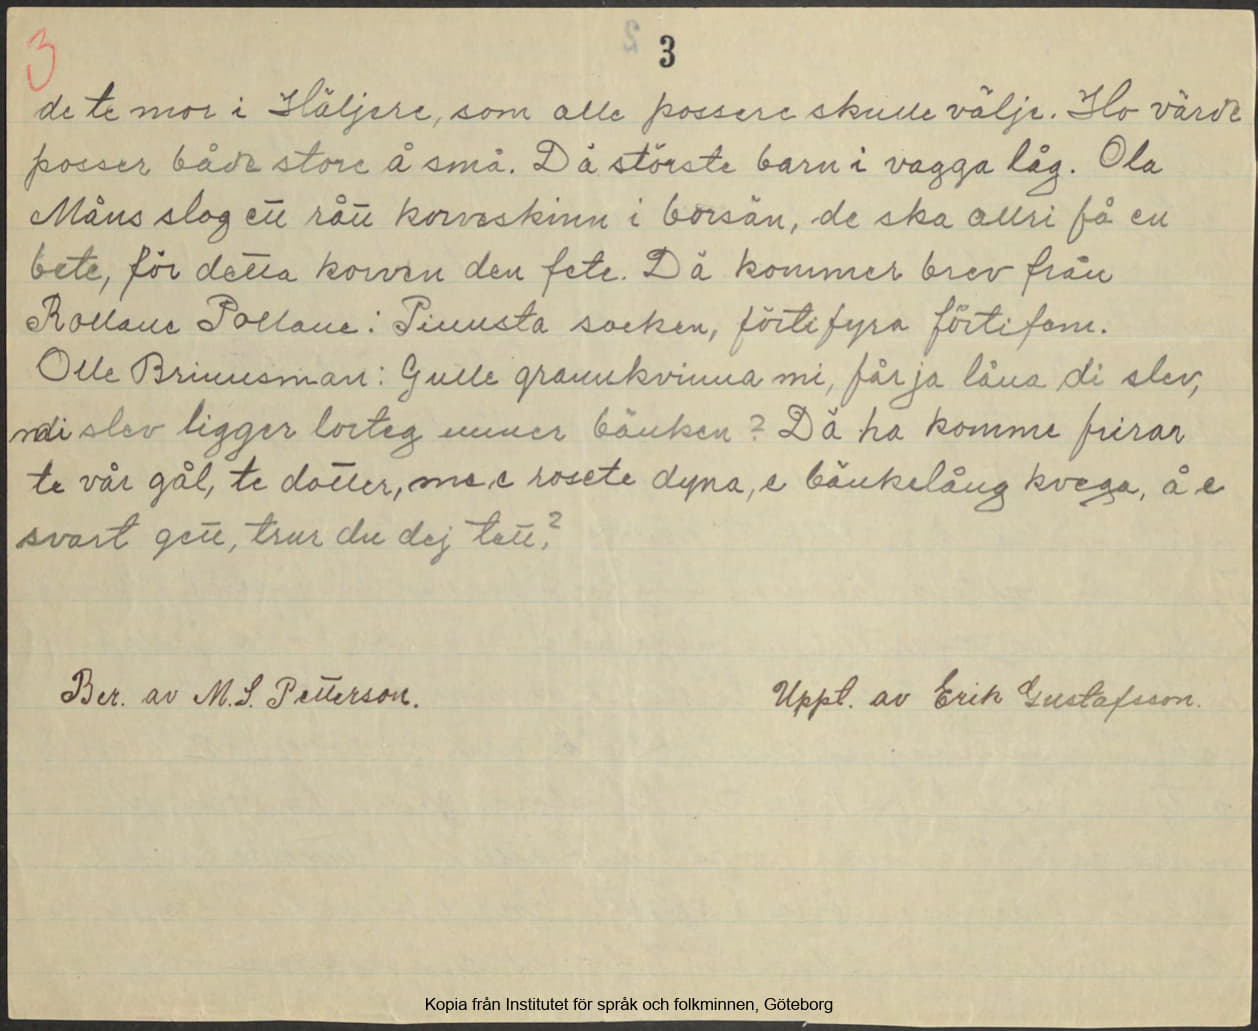 3
3
de te mor i Häljere, som alle possere skulle välje. Ho värde
posser både store å små. Då störste barn i vagga låg. Ola
Måns slog ett rått korveskinn i börsän, de ska allri få en
bete, för detta korven den fete. Dä kommer brev från
Rollane Pollane: Pinnsta socken, förtifyra förtifem.
Olle Brinnsman: Gulle grannkvinna mi, får ja låna di slev,
mdi slev ligger lorteg unner bänken? Dä ha komme frirar
te vår gål, te dotter, me e rosete dyna, e bänkelång kvega, å e
svart gett, trur du dej tett?
Ber. av M.S. Petterson.
Uppt. av Erik Gustafsson.
Kopia från Institutet för språk och folkminnen, Göteborg